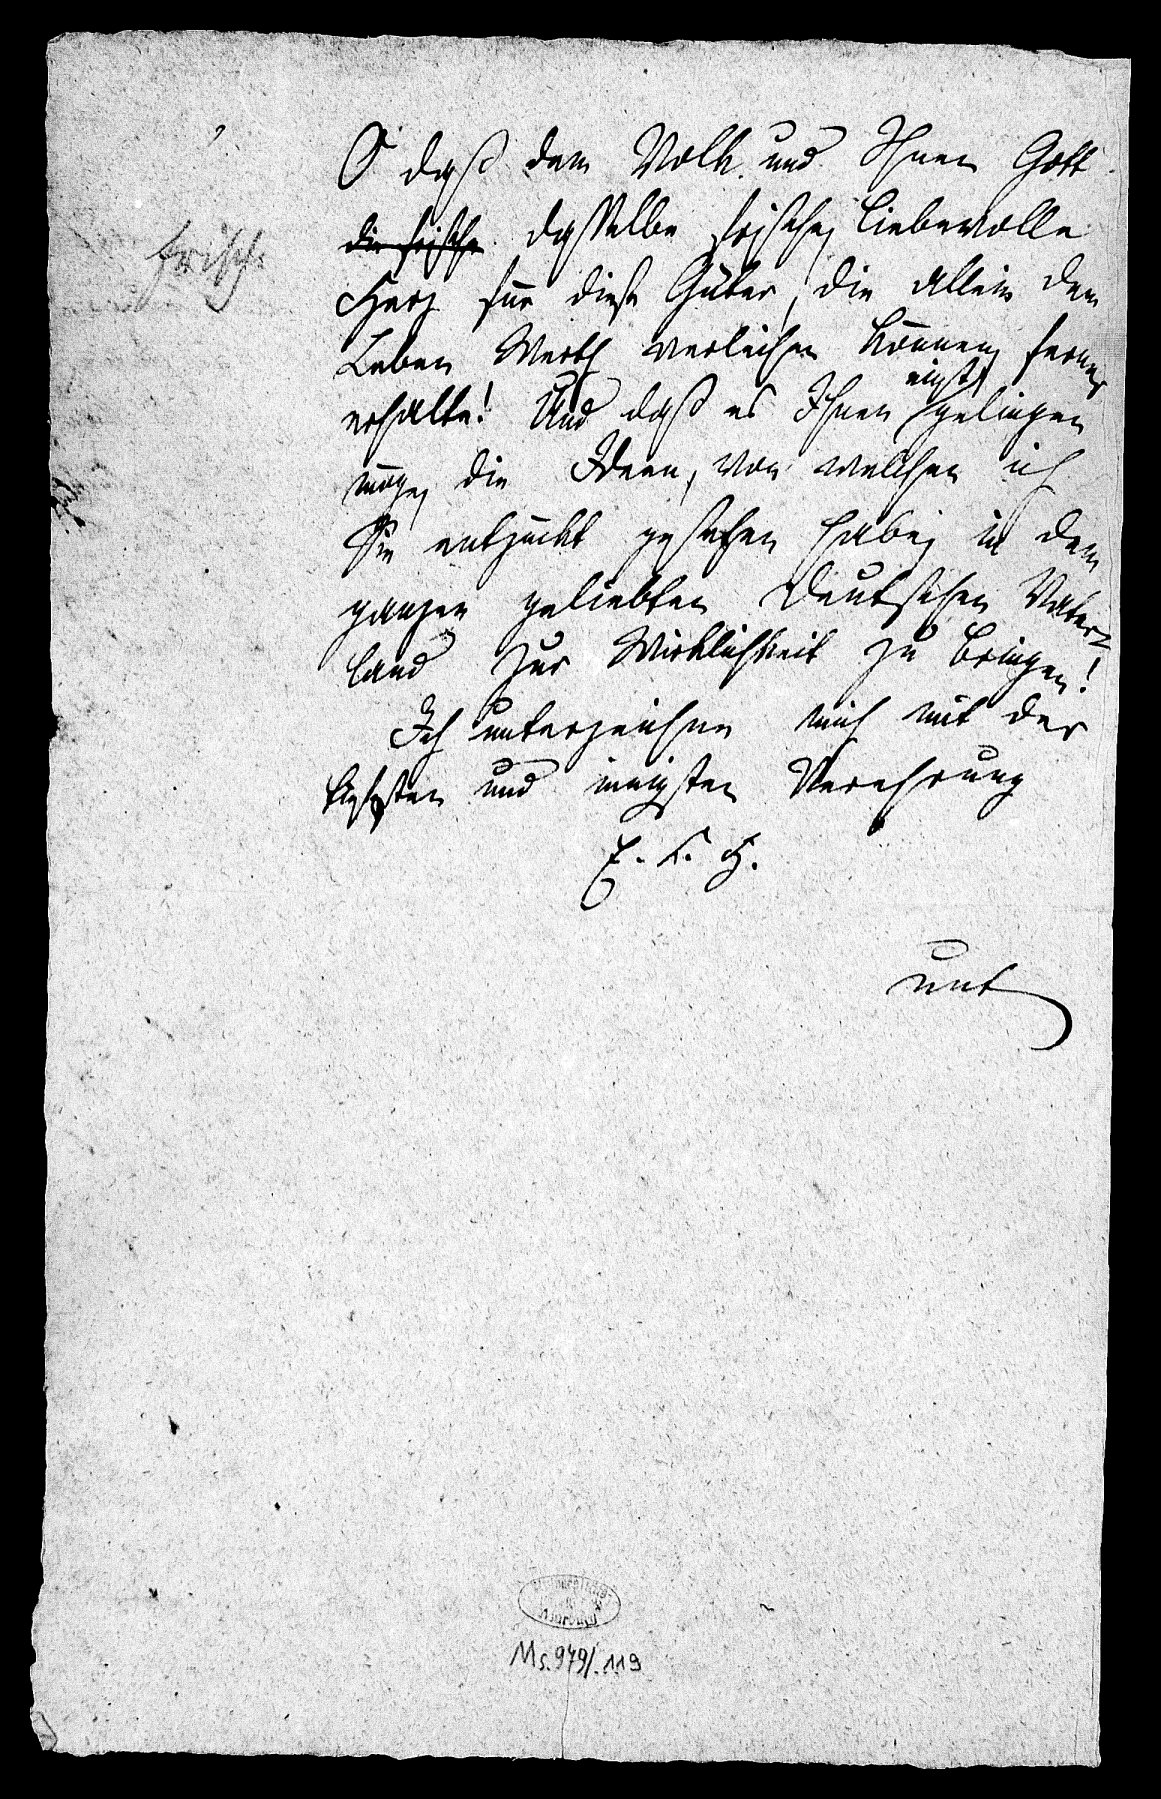 O daß dem Volk und Ihnen Gott
die frische dasselbe frische, liebevolle
frisch
Herz für diese Güter, die allein dem
Leben Werth verleihen können, ferner
erhalte! Und daß es Ihnen einst gelingen
möge, die Ideen, von welchen ich
Sie entzückt gesehen habe, in dem
ganzen geliebten Deutschen Vater-
land zur Wirklichkeit zu bringen!
Ich unterzeichne mich mit der
und innigsten Verehrung
E. K. H.
unt
Ms. 979/.119